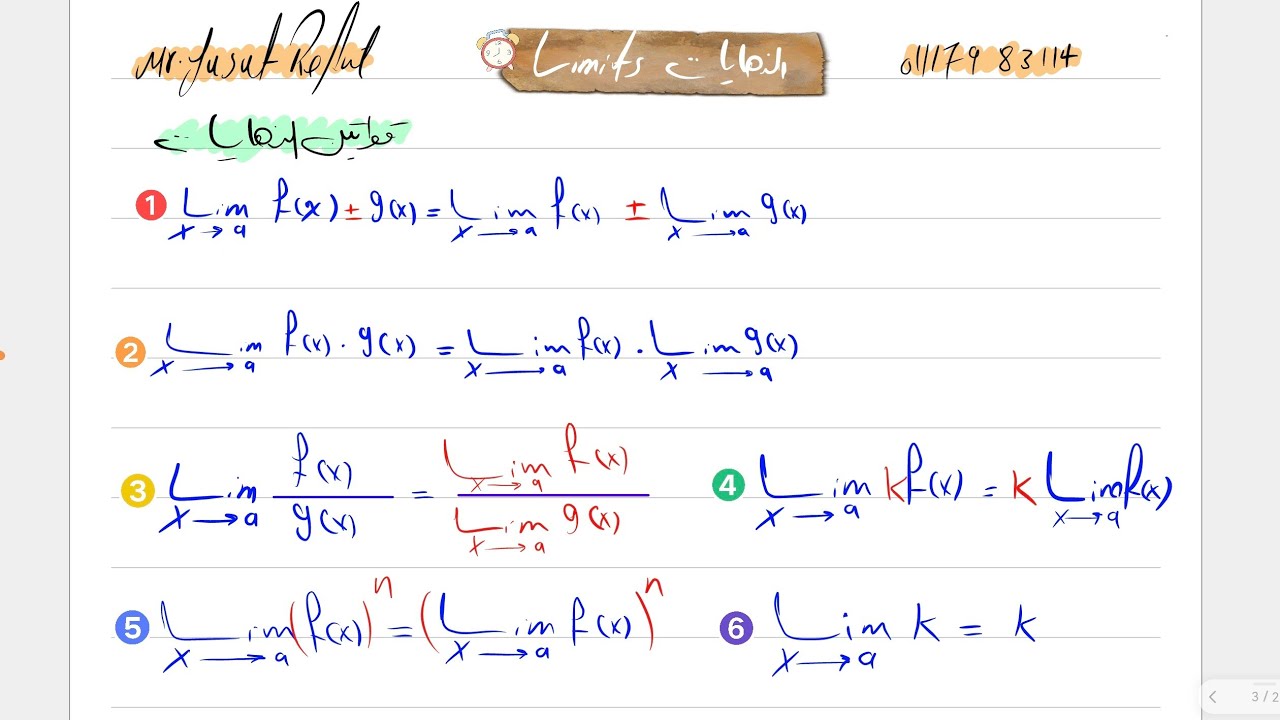 Mr. Yusuf Reffut Limits النهايات 01117983114
قوانين النهايات
1 Lim x→a f(x) ± g(x) = Lim x→a f(x) ± Lim x→a g(x)
2 Lim x→a f(x) . g(x) = Lim x→a f(x) . Lim x→a g(x)
3 Lim x→a f(x)/g(x) = Lim x→a f(x) / Lim x→a g(x)
4 Lim x→a k f(x) = k Lim x→a f(x)
5 Lim x→a (f(x))^n = (Lim x→a f(x))^n
6 Lim x→a k = k
3 / 2